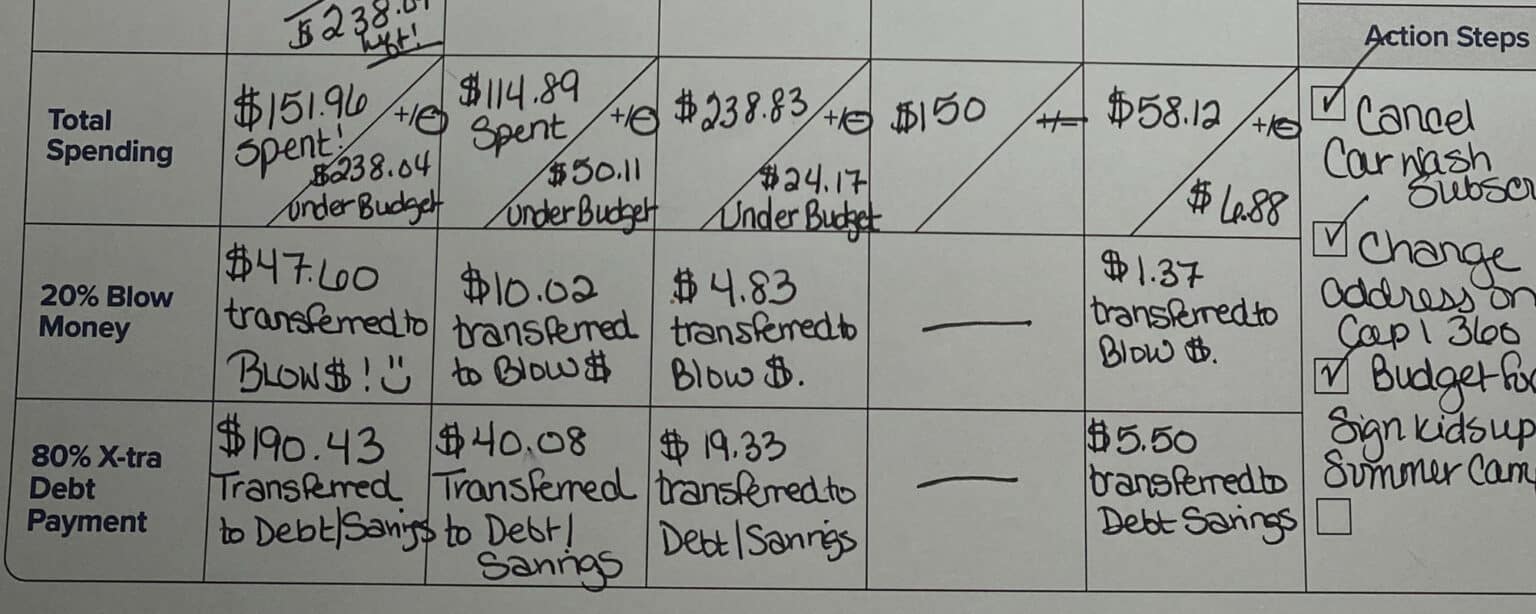 $238.04
left!
Action Steps
Total
Spending
$151.96
spent!
+/-
$238.04
Under Budget
$114.89
Spent
+/-
$50.11
Under Budget
$238.83
+/-
$24.17
Under Budget
$150
+/-
$58.12
+/-
$6.88
20% Blow
Money
$47.60
transferred to
BLOW$!
$10.02
transferred
to Blow$
$4.83
transferred to
Blow $.
—
$1.37
transferred to
Blow $.
80% X-tra
Debt
Payment
$190.43
Transferred
to Debt/Savings
$40.08
Transferred
to Debt/
Savings
$19.33
transferred to
Debt/Savings
—
$5.50
transferred to
Debt Savings
Cancel
Car wash
Subsc
Change
address on
Cap 1 360
Budget fo
Sign kids up
Summer Cam